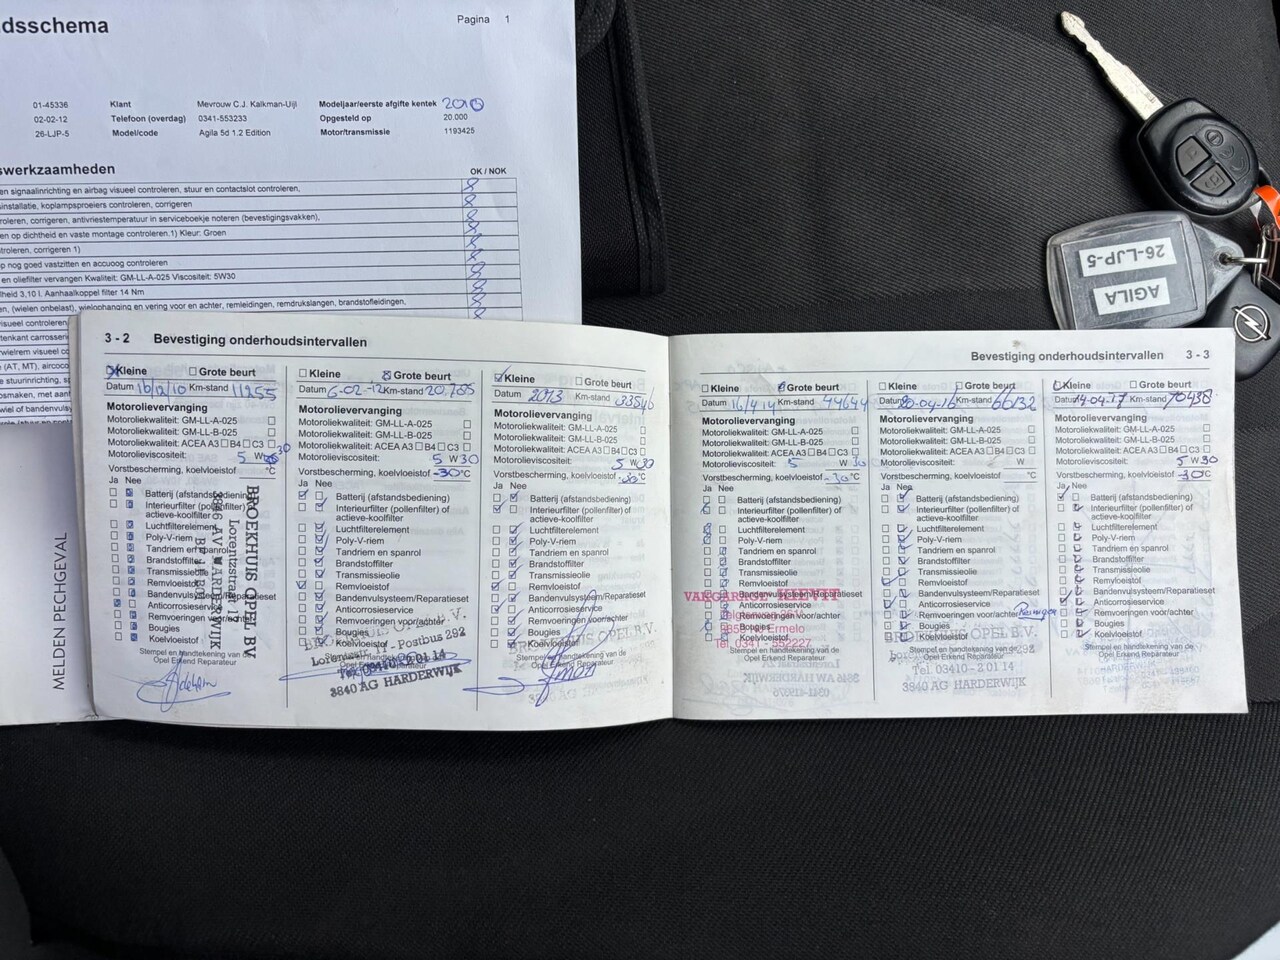 dsschema
Pagina 1
01-45336 Klant Mevrouw C.J. Kalkman-Uijl Modeljaar/eerste afgifte kentek
02-02-12 Telefoon (overdag) 0341-553233 Opgesteld op 20.000
26-LJP-5 Model/code Agila 5d 1.2 Edition Motor/transmissie 1193425
swerkzaamheden OK / NOK
en signaalinrichting en airbag visueel controleren, stuur en contactslot controleren,
sinstallatie, koplampsproeiers controleren, corrigeren
roleren, corrigeren, antivriestemperatuur in serviceboekje noteren (bevestigingsvakken),
en op dichtheid en vaste montage controleren.1) Kleur: Groen
troleren, corrigeren 1)
op nog goed vastzitten en accuoog controleren
en oliefilter vervangen Kwaliteit: GM-LL-A-025 Viscositeit: 5W30
lheid 3,10 l. Aanhaalkoppel filter 14 Nm
en, (wielen onbelast), wielophanging en vering voor en achter, remleidingen, remdrukslangen, brandstofleidingen,
26-LJP-5
AGILA
MELDEN PECHGEVAL
3 - 2 Bevestiging onderhoudsintervallen
Kleine Grote beurt
Datum 16/12/10 Km-stand 11255
Motorolievervanging
Motoroliekwaliteit: GM-LL-A-025
Motoroliekwaliteit: GM-LL-B-025
Motoroliekwaliteit: ACEA A3 B4 C3
Motorolieviscositeit: 5 W 30
Vorstbescherming, koelvloeistof °C
Ja Nee
Batterij (afstandsbediening)
Interieurfilter (pollenfilter) of
actieve-koolfilter
Luchtfilterelement
Poly-V-riem
Tandriem en spanrol
Brandstoffilter
Transmissieolie
Remvloeistof
Bandenvulsysteem/Reparatieset
Anticorrosieservice
Remvoeringen voor/achter
Bougies
Koelvloeistof
Stempel en handtekening van de
Opel Erkend Reparateur
BROEKHUIS OPEL BV
Lorentzstraat
3846 AV HARDERWIJK
Kleine Grote beurt
Datum 6-02-12 Km-stand 20.785
Motorolievervanging
Motoroliekwaliteit: GM-LL-A-025
Motoroliekwaliteit: GM-LL-B-025
Motoroliekwaliteit: ACEA A3 B4 C3
Motorolieviscositeit: 5 W 30
Vorstbescherming, koelvloeistof -30 °C
Ja Nee
Batterij (afstandsbediening)
Interieurfilter (pollenfilter) of
actieve-koolfilter
Luchtfilterelement
Poly-V-riem
Tandriem en spanrol
Brandstoffilter
Transmissieolie
Remvloeistof
Bandenvulsysteem/Reparatieset
Anticorrosieservice
Remvoeringen voor/achter
Bougies
Koelvloeistof
- Postbus 292
3840 AG HARDERWIJK
Kleine Grote beurt
Datum 2013 Km-stand 33546
Motorolievervanging
Motoroliekwaliteit: GM-LL-A-025
Motoroliekwaliteit: GM-LL-B-025
Motoroliekwaliteit: ACEA A3 B4 C3
Motorolieviscositeit: 5 W 30
Vorstbescherming, koelvloeistof °C
Ja Nee
Batterij (afstandsbediening)
Interieurfilter (pollenfilter) of
actieve-koolfilter
Luchtfilterelement
Poly-V-riem
Tandriem en spanrol
Brandstoffilter
Transmissieolie
Remvloeistof
Bandenvulsysteem/Reparatieset
Anticorrosieservice
Remvoeringen voor/achter
Bougies
Koelvloeistof
Stempel en handtekening van de
Opel Erkend Reparateur
Bevestiging onderhoudsintervallen 3 - 3
Kleine Grote beurt
Datum 16/4 14 Km-stand 44644
Motorolievervanging
Motoroliekwaliteit: GM-LL-A-025
Motoroliekwaliteit: GM-LL-B-025
Motoroliekwaliteit: ACEA A3 B4 C3
Motorolieviscositeit: 5 W 30
Vorstbescherming, koelvloeistof -30 °C
Ja Nee
Batterij (afstandsbediening)
Interieurfilter (pollenfilter) of
actieve-koolfilter
Luchtfilterelement
Poly-V-riem
Tandriem en spanrol
Brandstoffilter
Transmissieolie
Remvloeistof
Bandenvulsysteem/Reparatieset
Anticorrosieservice
Remvoeringen voor/achter
Bougies
Koelvloeistof
Stempel en handtekening van de
Opel Erkend Reparateur
VAKGARAGE KIEVIT
Ermelo
Tel. 0341 - 552227
Kleine Grote beurt
Datum 20-04-16 Km-stand 66132
Motorolievervanging
Motoroliekwaliteit: GM-LL-A-025
Motoroliekwaliteit: GM-LL-B-025
Motoroliekwaliteit: ACEA A3 B4 C3
Motorolieviscositeit: W
Vorstbescherming, koelvloeistof °C
Ja Nee
Batterij (afstandsbediening)
Interieurfilter (pollenfilter) of
actieve-koolfilter
Luchtfilterelement
Poly-V-riem
Tandriem en spanrol
Brandstoffilter
Transmissieolie
Remvloeistof
Bandenvulsysteem/Reparatieset
Anticorrosieservice
Remvoeringen voor/achter
Bougies
Koelvloeistof
Stempel en handtekening van de
Opel Erkend Reparateur
OPEL B.V.
Tel. 03410 - 2 01 14
3840 AG HARDERWIJK
Kleine Grote beurt
Datum 14-04-17 Km-stand 70438
Motorolievervanging
Motoroliekwaliteit: GM-LL-A-025
Motoroliekwaliteit: GM-LL-B-025
Motoroliekwaliteit: ACEA A3 B4 C3
Motorolieviscositeit: 5 W 30
Vorstbescherming, koelvloeistof -30 °C
Ja Nee
Batterij (afstandsbediening)
Interieurfilter (pollenfilter) of
actieve-koolfilter
Luchtfilterelement
Poly-V-riem
Tandriem en spanrol
Brandstoffilter
Transmissieolie
Remvloeistof
Bandenvulsysteem/Reparatieset
Anticorrosieservice
Remvoeringen voor/achter
Bougies
Koelvloeistof
Stempel en handtekening van de
Opel Erkend Reparateur